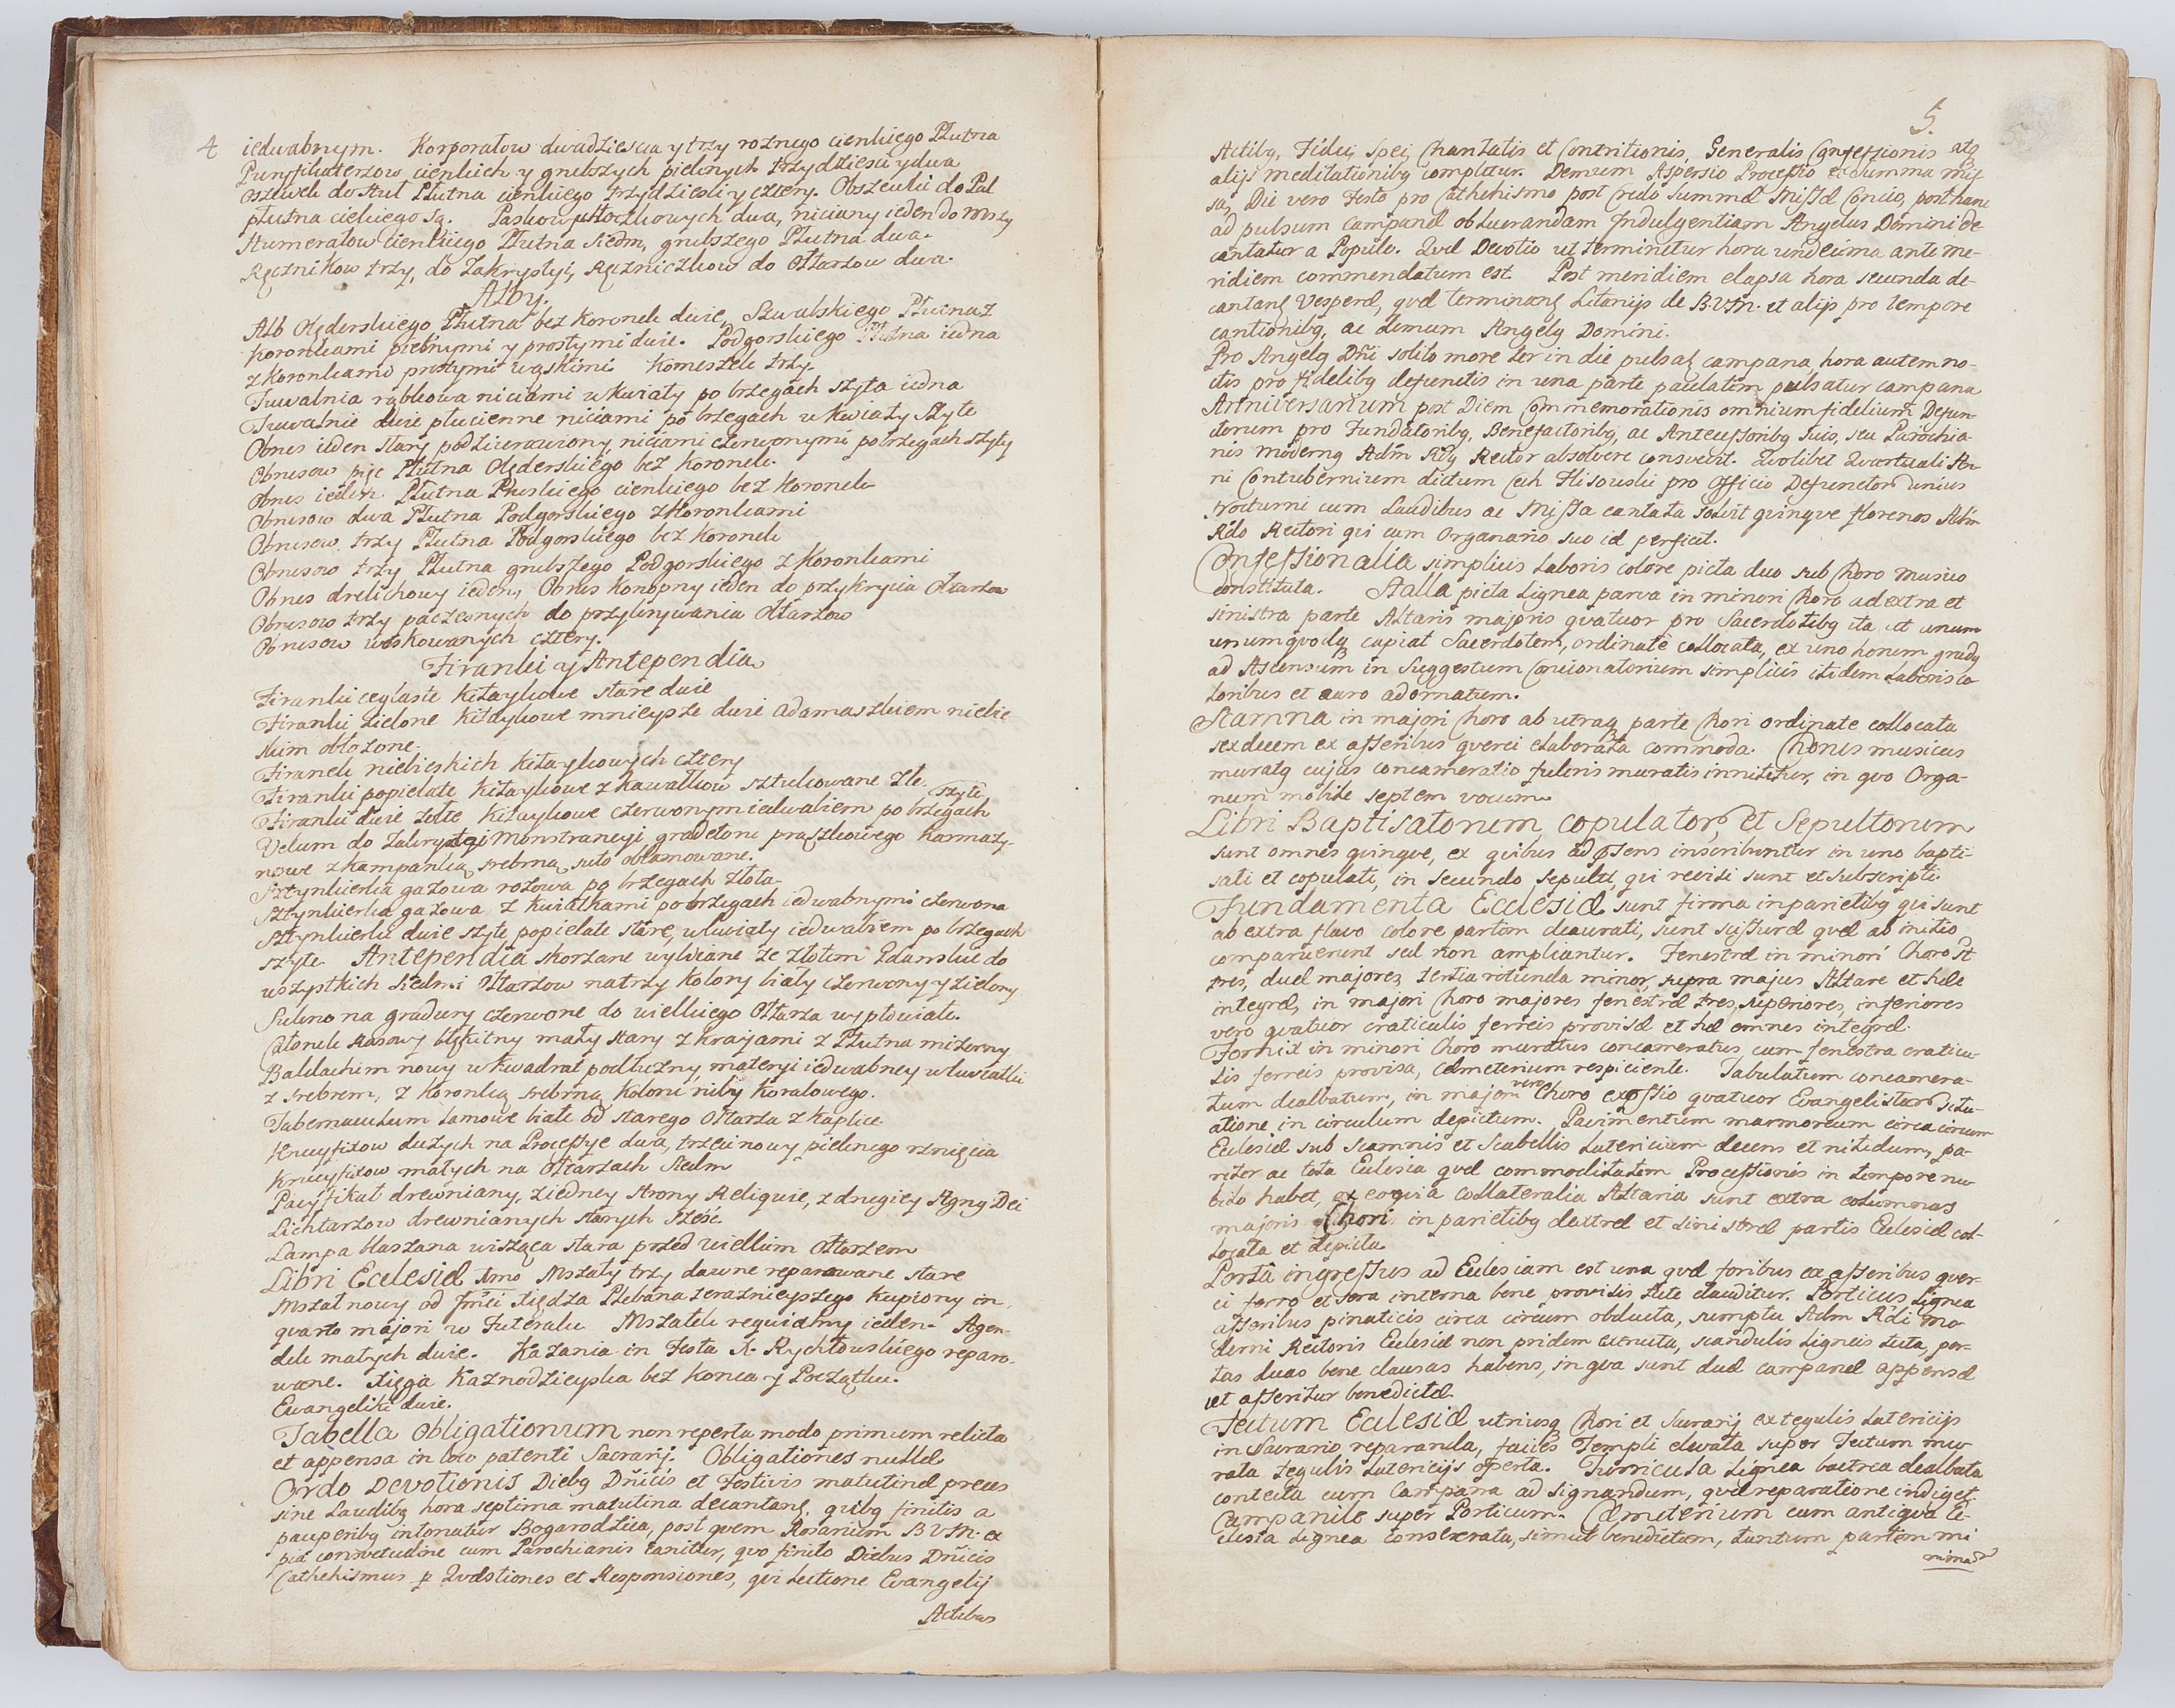 4
iedwabnym. Korporałow dwadziescia y trzy rożnego cienkiego Płutna
Puryfikaterzow cienkich y grubszych pieknych trzydziesci y dwa
do stuł Płutna cienkiego trzydziesci y cztery. Obszewki do Pal
płutna cienkiego są. Paskow dwa, niciany ieden do Mszy
Humerałow cienkiego Płutna siedm, grubszego Płutna dwa.
Ręcznikow trzy, do Zakrystyi, ręczniczkow do Ołtarzow dwa.
Alby.
Alb Olęderskiego Płutna bez Koronek dwie, Szwabskiego Płutna z
Koronkami pieknymi y prostymi dwie. Podgorskiego Płutna iedna
z Koronkami prostymi wąskimi Komeszek trzy.
Tuwalnia rąbkowa niciami w kwiaty po brzegach szyta iedna
Tuwalnie dwie płucienne niciami po brzegach w kwiaty szyte
Obrus ieden stary niciami czerwonymi po brzegach szyty
Obrusow pięc Płutna Olęderskiego bez Koronek.
Obrus ieden Płutna Pruskiego cienkiego bez Koronek
Obrusow dwa Płutna Podgorskiego z Koronkami
Obrusow trzy Płutna Podgorskiego bez Koronek
Obrusow trzy Płutna grubszego Podgorskiego z Koronkami
Obrus drelichowy ieden, Obrus konopny ieden do przykrycia Ołtarzow
Obrusow trzy paczesnych do przykrywania Ołtarzow
Obrusow woskowanych cztery.
Firanki y Antependia
Firanki ceglaste kitaykowe stare dwie
Firanki zielone kitaykowe mnieysze dwie adamaszkiem niebie
skim obłożone.
Firanek niebieskich kitaykowych cztery
Firanki popielate kitaykowe z kawałkow sztukowane złe.
Firanki dwie żołte kitaykowe czerwonym iedwabiem po brzegach szyte
Velum do Zakrystyi Monstrancyi gradetoru prążkowego karmazy-
nowe z kampanką srebrną suto oblamowane.
Sztynkierka gazowa rożowa po brzegach złota
Sztynkierka gazowa z kwiatkami po brzegach iedwabnymi czerwona
Sztynkierki dwie szyte popielate stare, w kwiaty iedwabiem po brzegach
szyte. Antependia skorzane wybiiane ze złotem Zdanskie do
wszystkich siedmi Ołtarzow na trzy kolory biały czerwony y zielony
Sukno na gradusy czerwone do wielkiego Ołtarza wypłowiałe.
Całonek rasowy błękitny mały stary z krajami z Płutna mizerny
Baldachim nowy w kwadrat podłużny materyi iedwabney w kwiatki
z srebrem, z koronką srebrną koloru niby koralowego.
Tabernaculum lamowe białe od starego Ołtarza z kaplice
Krucyfixow dużych na Processye dwa, trzeci nowy pieknego rznięcia
Krucyfixow małych na Ołtarzach siedm
Pacyfikał drewniany, z iedney strony Reliquie, z drugiey Agnus Dei
Lichtarzow drewnianych starych sześć.
Lampa blaszana wisząca stara przed wielkim Ołtarzem
Libri Ecclesiæ 1mo Mszały trzy dawne reparowane stare
Mszał nowy od Xiędza Plebana zeraznieyszego kupiony in
quarto majori w Futerale Mszałek requialny ieden. Agen-
dek małych dwie. Kazania in Festa X. Rychłowskiego reparo-
wane. Xięga Kaznodzieyska bez Konca y Początku.
Ewangeliki dwie.
Tabella Obligationum non reperta modo primum relicta
et appensa in loco patenti Sacrarij. Obligationes nullæ
Ordo Devotionis Diebg Dnicis et Festivis matutinæ preces
sine Laudibg hora septima matutina decantang, quibg finitis a
pauperibg intonatur Bogarodzica, post quem Rosarium B.V.M. ex
pia consvetudine cum Parochianis canitur, quo finito Diebus Dnicis
Cathehismus p Quæstiones et Responsiones, qui lectione Evangelij
Actibus
5.
Actibg, Fidei, Spei, Charitatis et Contritionis, Generalis Confessionis atq
alijs meditationibg completur. Demum Aspersio Processio et Summa mis
sa, Die vero Festo pro Cathehismo post Credo Summæ Missæ Concio, post hanc
ad pulsum Campanæ ob lucrandam Indulgentiam Angelus Domini de
cantatur a Populo. Quæ Devotio ut terminetur hora undecima ante me-
ridiem commendatum est. Post meridiem elapsa hora secunda de-
cantang Vesperæ, quæ terminang Litanijs de B.V.M. et alijs pro tempore
cantionibg, ac demum Angelg Domini.
Pro Angelg Dñi solito more ter in die pulsat campana, hora autem no-
ctis pro fidelibg defunctis in una parte paulatim pulsatur campana
Anniversarium post Diem Commemorationis omnium fidelium Defun-
ctorum pro Fundatoribg, Benefactoribg, ac Antecessoribg suis, seu Parochia-
nis moderng Adm Rdg Rector absolvere consvevit. Quolibet Quartuali An-
ni Contubernium dictum Cech Flisowski pro Officio Defunctor unius
Nocturni cum Laudibus ac Missa cantata solvit quinque florenos Adm
Rdo Rectori qui cum Organario suo id perficit.
Confessionalia simplicis laboris colore picta duo sub Choro musico
constituta. Stalla picta lignea parva in minori Choro ad extra et
sinistra parte Altaris majoris quatuor pro Sacerdotibg ita ut unum
unumquodq capiat Sacerdotem, ordinate collocata, ex uno horum gradg
ad Ascensum in Suggestum Concionatorium simplicis itidem laboris co
loribus et auro adornatum.
Scamna in majori Choro ab utraq parte Chori ordinate collocata
sexdecem ex asseribus querci elaborata commoda. Chorus musicus
muratg cujus concameratio fulcris muratis innititur, in quo Orga-
num mobile septem vocum
Libri Baptisatorum, copulator, et Sepultorum
sunt omnes quinque, ex quibus ad præsens inscribuntur in uno bapti-
sati et copulati, in secundo sepulti, qui revisi sunt et subscripti.
Fundamenta Ecclesiæ sunt firma in parietibg qui sunt
ab extra flavo colore partim deaurati, sunt scissuræ quæ ab initio
comparuerunt sed non ampliantur. Fenestræ in minori Choro st
tres, duæ majores tertia rotunda minor supra majus Altare et hæc
integræ, in majori Choro majores fenestræ tres, superiores, inferiores
vero quatuor craticulis ferreis provisæ et hæ omnes integræ.
Fornix in minori Choro muratus concameratus cum fenestra craticu-
lis ferreis provisa, Cæmeterium respiciente. Tabulatum concamera-
tum dealbatum, in majori vero Choro quatuor Evangelistar situ-
atione in circulum depictum. Pavimentum marmoreum circa circum
Ecclesiæ sub Scamnis et Scabellis Latericium decens et nitidum, pa-
riter ac tota Ecclesia quæ commoditatem Processionis in tempore nu-
bilo habet, ex eo quia collateralia Altaria sunt extra columnas
majoris Chori in parietibg dextræ et sinistræ partis Ecclesiæ col-
locata et depicta
Porta ingressus ad Ecclesiam est una quæ foribus ex asseribus quer-
ci ferro et sera interna bene provisis tute clauditur. Porticus lignea
asseribus pinaticis circa circum obducta, sumptu Adm Rdi mo
derni Rectoris Ecclesiæ non pridem extructa, scandulis ligneis tecta, por-
tas duas bene clausas habens, in qua sunt duæ campanæ appensæ
et asseritur benedictæ
Tectum Ecclesiæ utriusq Chori et Sacrarij ex tegulis latericijs
in Sacrario reparanda, facies Templi elevata super Tectum mu-
rata tegulis latericijs operta. Turricula lignea dealbata
contecta cum Campana ad signandum, quæ reparatione indiget.
Campanile super Porticum. Cæmeterium cum antiqua Ec-
clesia lignea consecrata, simul benedictum, tantum partem mi
nima